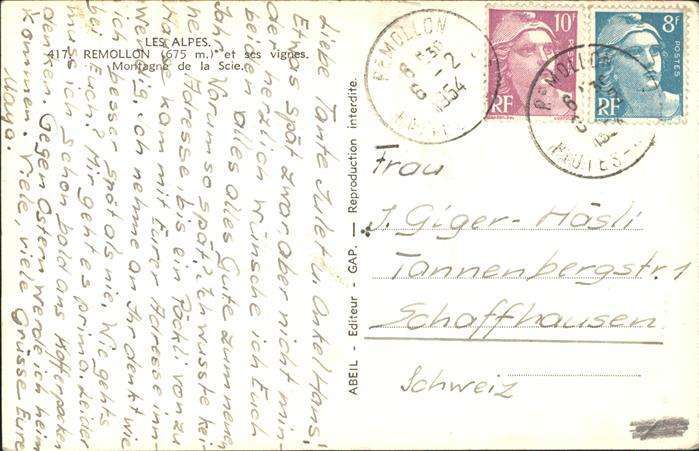 LES ALPES.
417. REMOLLON (675 m.) et ses vignes.
Montagne de la Scie.
Liebe Tante Jule u. Onkel Hans!
Etwas spät zwar aber nicht min-
der herzlich wünsche ich Euch
beiden alles alles Gute zum neuen
Jahr. Warum so spät, ich wusste kei-
ne Adresse, bis ein Päckli von zu
Haus kam mit Eurer Adresse inn-
wendig, ich nehme an Ihr denkt wie
ich besser spät als nie. Wie gehts
bei Euch? Mir geht es prima. Leider
muss ich schon bald ans Kofferpacken
denken. Gegen Ostern werde ich heim
kommen. Viele, viele Grüsse Eure
Maya.
ABEIL - Editeur - GAP. — Reproduction interdite.
REMOLLON
6-2
1954
HAUTES-
10F
RF
POSTES
8F
RF
REMOLLON
HAUTES-
Frau
J. Giger-Hösli
Tannenbergstr. 1
Schaffhausen
Schweiz